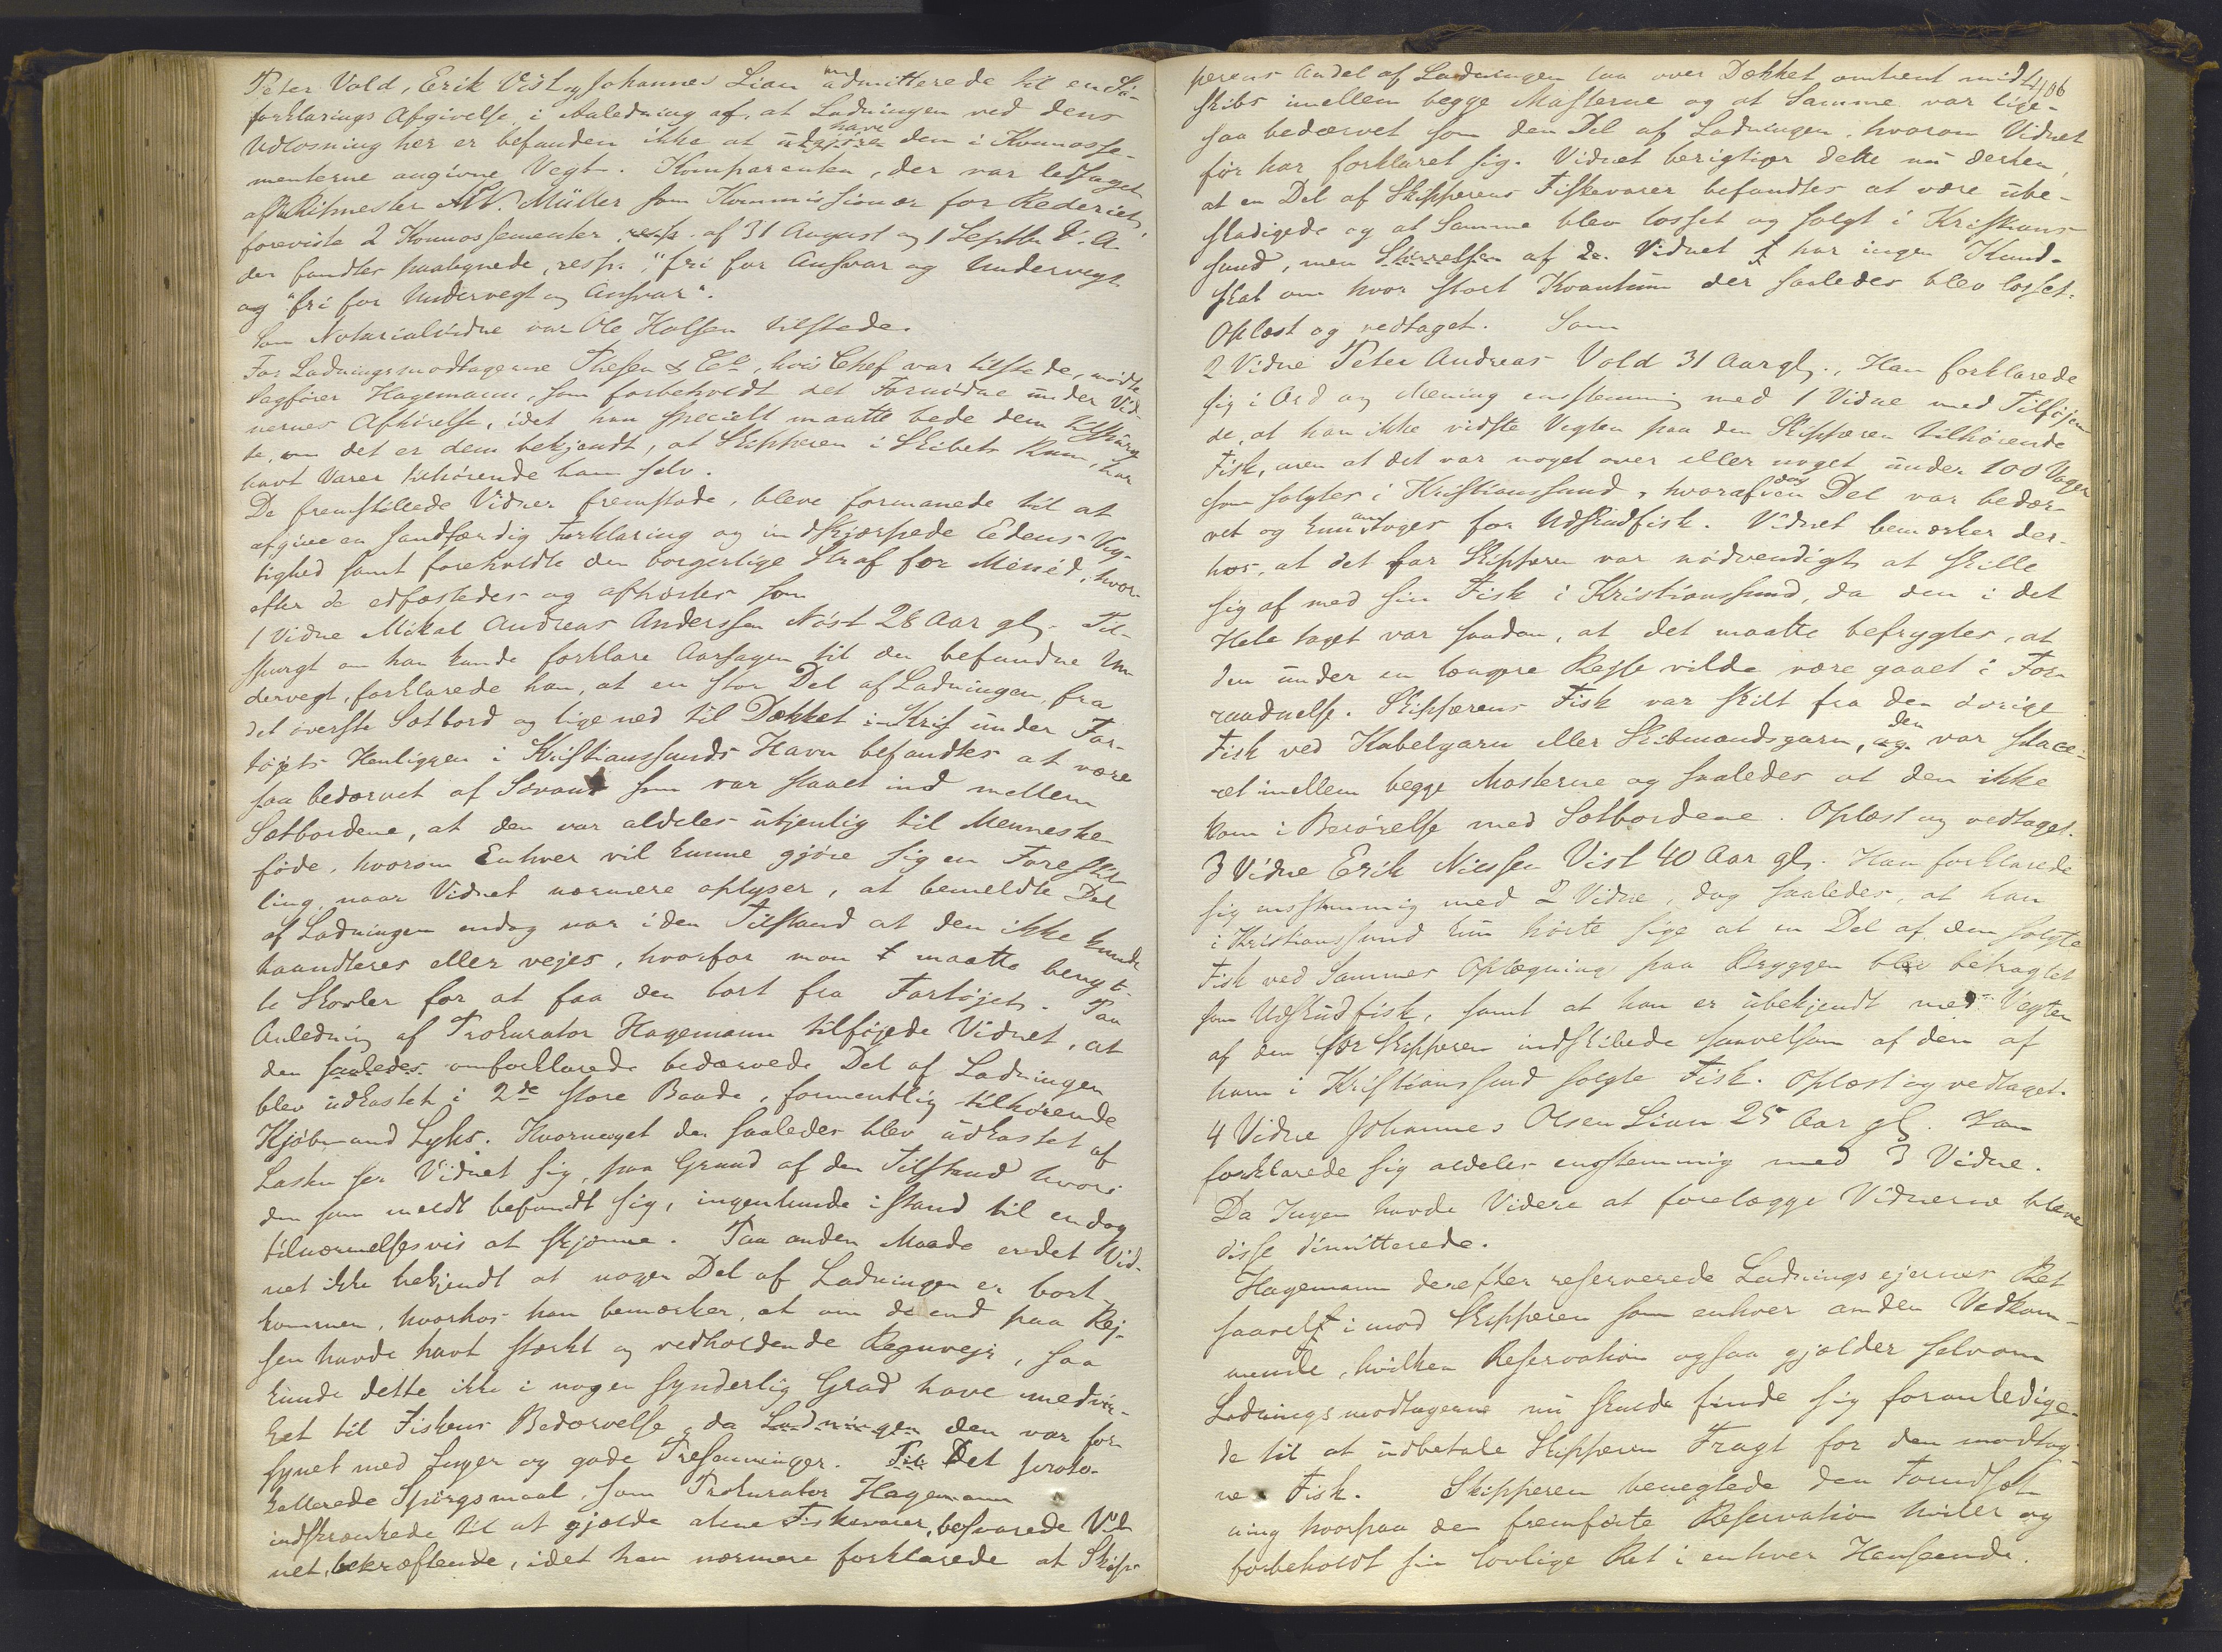 Peter Vold, Erik Vist og Johannes Lian admitterede til en Sö-
forklarings Afgivelse i Anledning af, at Ladningen ved dens
Udlosning her er befunden ikke at have den i Konnosse-
menterne angivne Vegt. Komparenten, der var ledsaget
af Ritmester Müller som Kommissionær for Rederiet,
foreviste 2 Konnossementer resp. af 31 August og 1 Septbr d. A.
der fandtes paategnede, resp. "fri for Ansvar og Undervegt
og "fri for Undervegt og Ansvar".
Som Notarialvidne var Ole Halsen tilstede.
For Ladningsmodtagerne Thesen & Co, hvis Chef var tilstede, mödte
Sagförer Hagemann, som forbeholdt det Fornödne under Vid-
nernes Afhörelse, idet han specielt maatte bede dem tilspurg-
te, om det er dem bekjendt, at Skipperen i Skibets Rum, har
havt Varer tilhörende ham selv.
De fremstillede Vidner fremstode, bleve formanede til at
afgive en sandfærdig Forklaring og indskjærpede Edens Vig-
tighed samt foreholdte den borgerlige Straf for Menéd, hvor-
efter de edfæstedes og afhörtes som
1 Vidne Mikal Andreas Anderssen Nöst 28 Aar glj. Til-
spurgt om han kunde forklare Aarsagen til den befundne Un
dervegt, forklarede han, at en stor Del af Ladningen, fra
det överste Sætbord og lige ned til Dækket under Far-
töjets Henliggen i Kristianssunds Havn befandtes at være
saa bedærvet af Sövand som var slaaet ind mellem
Sætbordene, at den var aldeles utjenlig til Menneske
föde, hvorom Enhver vil kunne gjöre sig en Forestil
ling, naar Vidnet nærmere oplyser, at bemeldte Del
af Ladningen endog var i den Tilstand at den ikke kunde
haandteres eller vejes, hvorfor man maatte benyt-
te Skovler for at faa den bort fra Fartöjet. Paa
Anledning af Prokurator Hagemann tilföjede Vidnet, at
den saaledes omforklarede bedærvede Del af Ladningen
blev udkastet i 2de store Baade, formentlig tilhörende
Kjöbmand Lyhs. Hvormeget der saaledes blev udkastet af
Lasten ser Vidnet sig, paa Grund af den Tilstand hvori
den som meldt befandt sig, ingenlunde istand til endog
tilnærmelsesvis at skjönne. Paa anden Maade er det Vid-
net ikke bekjendt at nogen Del af Ladningen er bort-
kommen, hvorhos han bemærker, at om de end paa Rej-
sen havde havt stærkt og vedholdende Regnvejr, saa
kunde dette ikke i nogen synderlig Grad have medvir-
ket til Fiskens Bedærvelse, da Ladningen den var for-
synet med Luger og gode Presenninger. Det proto-
kollerede Spörgsmaal, som Prokurator Hagemann
indskrænkede til at gjælde alene Fiskevarer, besvarede Vid
net, bekræftende, idet han nærmere forklarede at Skip-
406
perens Andel af Ladningen laa over Dækket omtrent mid
skibs imellem begge Masterne og at Samme var lige-
saa bedærvet som den Del af Ladningen, hvorom Vidnet
för har forklaret sig. Vidnet berigtiger dette nu derhen,
at en Del af Skipperens Fiskevarer befandtes at være ube-
skadigede og at Samme blev losset og solgt i Kristians-
sund, men Vidnet har ingen Kund-
skab om hvor stort Kvantum der saaledes blev losset.
Oplæst og vedtaget. Som
2 Vidne Peter Andreas Vold 31 Aar glj., Han forklarede
sig i Ord og Mening enstemmig med 1 Vidne med Tilföjen
de, at han ikke vidste Vegten paa den Skipperen tilhörende
Fisk, men at det var noget over eller noget under 100 Voger
som solgtes i Kristianssund, hvoraf dog en Del var bedær-
vet og kun antoges for Udskudfisk. Vidnet bemærker der-
hos, at det for Skipperen var nödvendigt at skille
sig af med sin Fisk i Kristianssund, da den i det
Hele taget var saadan, at det maatte befrygtes, at
den under en længre Rejse vilde være gaaet i For-
raadnelse. Skipperens Fisk var skilt fra den övrige
Fisk ved Kabelgarn eller Skibmandsgarn, den var place-
ret imellem begge Masterne og saaledes at den ikke
kom i Berörelse med Sætbordene. Oplæst og vedtaget.
3 Vidne Erik Nilssen Vist 40 Aar glj. Han forklarede
sig enstemmig med 2 Vidne, dog saaledes, at han
i Kristianssund kun hörte sige at en Del af den solgte
Fisk ved Sammes Oplægning paa Bryggen blev betragtet
som Udskudfisk, samt at han er ubekjendt med Vegten
af den for Skipperen indskibede saavelsom af den af
ham i Kristianssund solgte Fisk. Oplæst og vedtaget.
4 Vidne Johannes Olsen Lian 25 Aar glj. Han
forklarede sig aldeles enstemmig med 3 Vidne.
Da Ingen havde Videre at forelægge Vidnerne bleve
disse dimitterede.
Hagemann derefter reserverede Ladningsejernes Ret
saavelt imod Skipperen som enhver anden Vedkom-
mende, hvilken Reservation ogsaa gjælder selv om
Ladningsmodtagerne nu skulde finde sig foranledige-
de til at udbetale Skipperen Fragt for den modtag-
ne Fisk. Skipperen benegtede den Forudsæt
ning hvorpaa den fremförte Reservation hviler og
forbeholdt sin lovlige Ret i enhver Henseende.